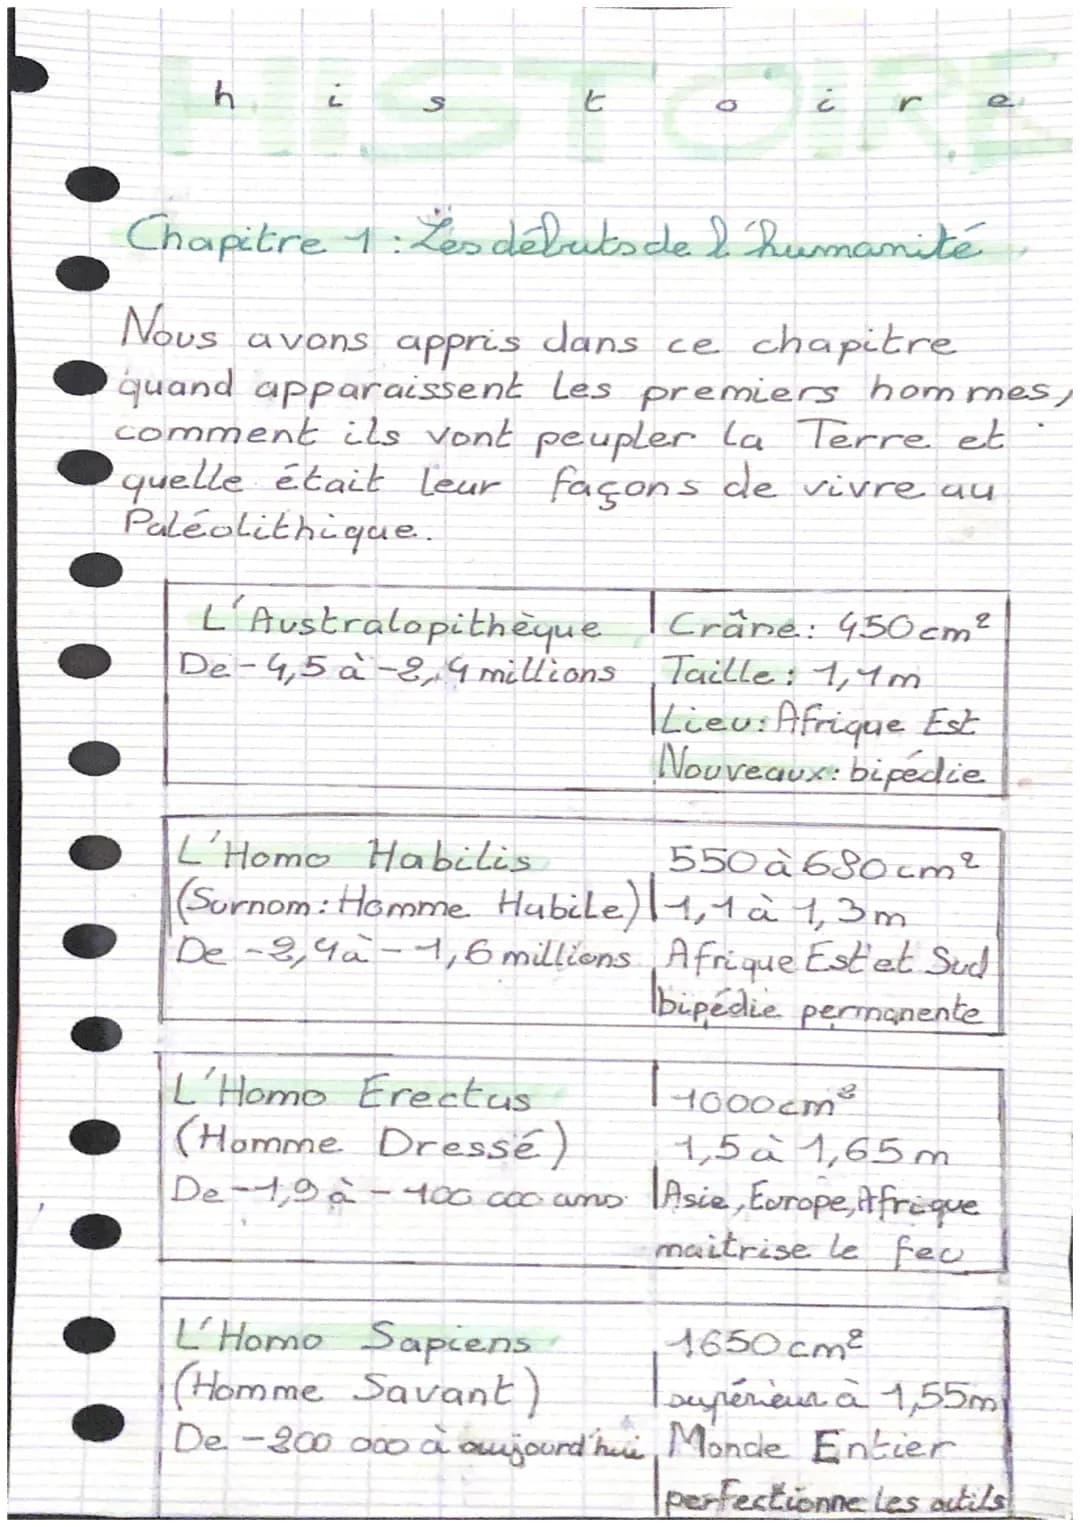 HISTOIRE
histoire
Chapitre 1 : Les débuts de l'humanité
Nous avons appris dans ce chapitre
quand apparaissent les premiers hommes,
comment ils vont peupler la Terre et
quelle était leur façons de vivre au
Paléolithique.
L'Australopithèque
De -4,5 à -2,4 millions
Crâne : 450 cm²
Taille : 1,1 m
Lieu : Afrique Est
Nouveaux : bipédie
L'Homo Habilis
(Surnom : Homme Habile)
De -2,4 à -1,6 millions
550 à 680 cm²
1,1 à 1,3 m
Afrique Est et Sud
bipédie permanente
L'Homo Erectus
(Homme Dressé)
De -1,9 à -100 000 ans
1000 cm²
1,5 à 1,65 m
Asie, Europe, Afrique
maitrise le feu
L'Homo Sapiens
(Homme Savant)
De -200 000 à aujourd'hui
1650 cm²
supérieur à 1,55 m
Monde Entier
perfectionne les outils